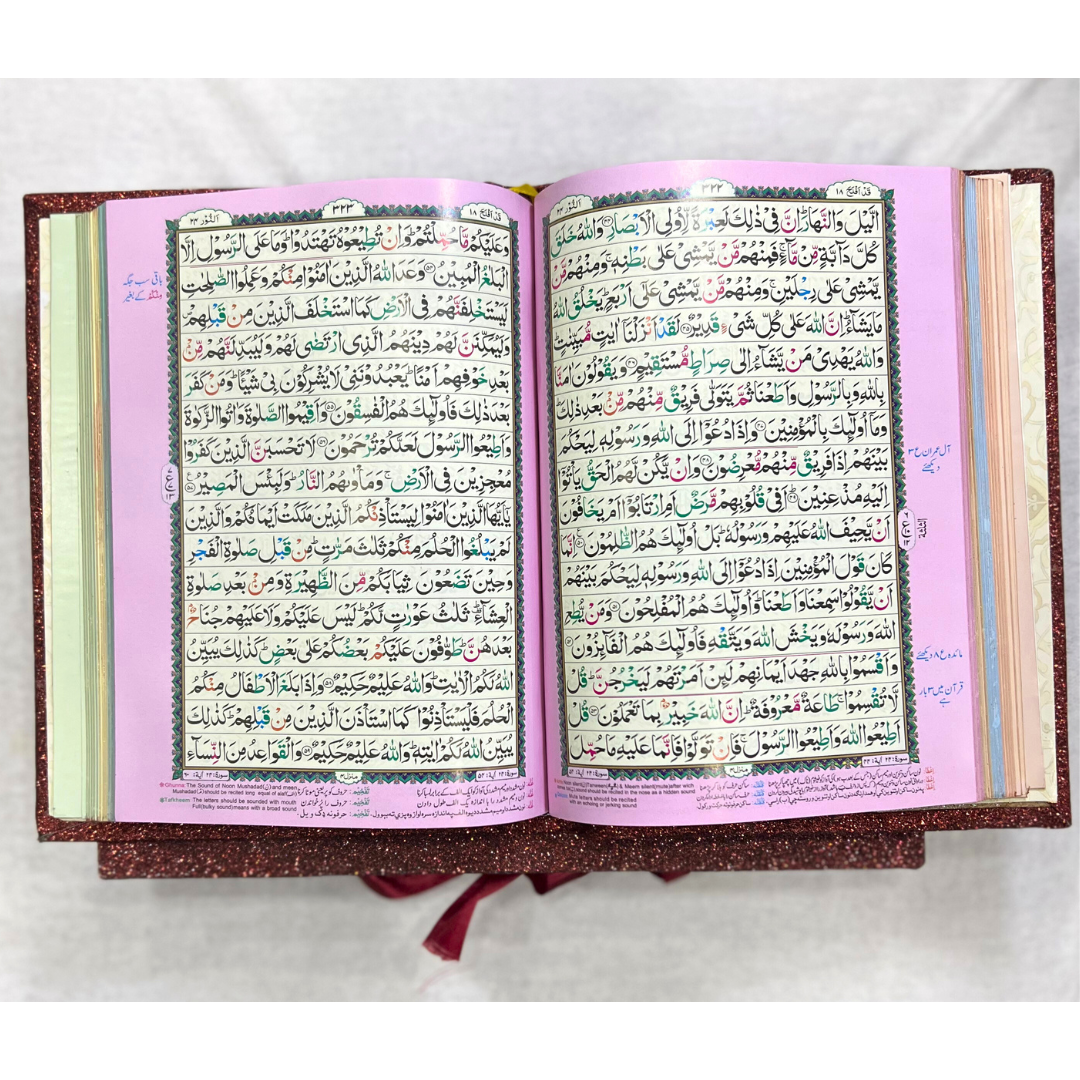 قَدۡ اَفۡلَحَ ١٨
٣٢٢
اَلنُّوۡر ٢٤
الَّيۡلَ وَالنَّهَارَ ؕ اِنَّ فِىۡ ذٰلِكَ لَعِبۡرَةً لِّاُولِى الۡاَبۡصَارِ ﴿۴۴﴾ وَاللّٰهُ خَلَقَ
كُلَّ دَآبَّةٍ مِّنۡ مَّآءٍ ۚ فَمِنۡهُمۡ مَّنۡ يَّمۡشِىۡ عَلٰى بَطۡنِهٖ ۚ وَمِنۡهُمۡ مَّنۡ
يَّمۡشِىۡ عَلٰى رِجۡلَيۡنِ ۚ وَمِنۡهُمۡ مَّنۡ يَّمۡشِىۡ عَلٰٓى اَرۡبَعٍ ؕ يَخۡلُقُ اللّٰهُ
مَا يَشَآءُ ؕ اِنَّ اللّٰهَ عَلٰى كُلِّ شَىۡءٍ قَدِيۡرٌ ﴿۴۵﴾ لَقَدۡ اَنۡزَلۡنَاۤ اٰيٰتٍ مُّبَيِّنٰتٍ ؕ
وَاللّٰهُ يَهۡدِىۡ مَنۡ يَّشَآءُ اِلٰى صِرَاطٍ مُّسۡتَقِيۡمٍ ﴿۴۶﴾ وَيَقُوۡلُوۡنَ اٰمَنَّا
بِاللّٰهِ وَبِالرَّسُوۡلِ وَاَطَعۡنَا ثُمَّ يَتَوَلّٰى فَرِيۡقٌ مِّنۡهُمۡ مِّنۡۢ بَعۡدِ ذٰلِكَ ؕ
وَمَاۤ اُولٰٓئِكَ بِالۡمُؤۡمِنِيۡنَ ﴿۴۷﴾ وَاِذَا دُعُوۡۤا اِلَى اللّٰهِ وَرَسُوۡلِهٖ لِيَحۡكُمَ
بَيۡنَهُمۡ اِذَا فَرِيۡقٌ مِّنۡهُمۡ مُّعۡرِضُوۡنَ ﴿۴۸﴾ وَاِنۡ يَّكُنۡ لَّهُمُ الۡحَقُّ يَاۡتُوۡۤا
اِلَيۡهِ مُذۡعِنِيۡنَ ﴿۴۹﴾ اَفِىۡ قُلُوۡبِهِمۡ مَّرَضٌ اَمِ ارۡتَابُوۡۤا اَمۡ يَخَافُوۡنَ
اَنۡ يَّحِيۡفَ اللّٰهُ عَلَيۡهِمۡ وَرَسُوۡلُهٗ ؕ بَلۡ اُولٰٓئِكَ هُمُ الظّٰلِمُوۡنَ ﴿۵۰﴾ اِنَّمَا
كَانَ قَوۡلَ الۡمُؤۡمِنِيۡنَ اِذَا دُعُوۡۤا اِلَى اللّٰهِ وَرَسُوۡلِهٖ لِيَحۡكُمَ بَيۡنَهُمۡ
اَنۡ يَّقُوۡلُوۡا سَمِعۡنَا وَاَطَعۡنَا ؕ وَاُولٰٓئِكَ هُمُ الۡمُفۡلِحُوۡنَ ﴿۵۱﴾ وَمَنۡ يُّطِعِ
اللّٰهَ وَرَسُوۡلَهٗ وَيَخۡشَ اللّٰهَ وَيَتَّقۡهِ فَاُولٰٓئِكَ هُمُ الۡفَآئِزُوۡنَ ﴿۵۲﴾
وَاَقۡسَمُوۡا بِاللّٰهِ جَهۡدَ اَيۡمَانِهِمۡ لَئِنۡ اَمَرۡتَهُمۡ لَيَخۡرُجُنَّ ؕ قُلْ
لَّا تُقۡسِمُوۡا ۚ طَاعَةٌ مَّعۡرُوۡفَةٌ ؕ اِنَّ اللّٰهَ خَبِيۡرٌۢ بِمَا تَعۡمَلُوۡنَ ﴿۵۳﴾ قُلۡ
اَطِيۡعُوا اللّٰهَ وَاَطِيۡعُوا الرَّسُوۡلَ ۚ فَاِنۡ تَوَلَّوۡا فَاِنَّمَا عَلَيۡهِ مَا حُمِّلَ
آل عمران ع ۳
دیکھئے
مائدہ ع ۸ دیکھئے
قرآن میں ۳ بار
ہے
منزل ٤
Meem silent(mute)after wich
should be recited in the nose as a hidden sound
Mute letters should be recited
with an echoing or jerking sound
قَدۡ اَفۡلَحَ ١٨
٣٢٣
اَلنُّوۡر ٢٤
وَعَلَيۡكُمۡ مَّا حُمِّلۡتُمۡ ؕ وَاِنۡ تُطِيۡعُوۡهُ تَهۡتَدُوۡا ؕ وَمَا عَلَى الرَّسُوۡلِ اِلَّا
الۡبَلٰغُ الۡمُبِيۡنُ ﴿۵۴﴾ وَعَدَ اللّٰهُ الَّذِيۡنَ اٰمَنُوۡا مِنۡكُمۡ وَعَمِلُوا الصّٰلِحٰتِ
لَيَسۡتَخۡلِفَنَّهُمۡ فِى الۡاَرۡضِ كَمَا اسۡتَخۡلَفَ الَّذِيۡنَ مِنۡ قَبۡلِهِمۡ
وَلَيُمَكِّنَنَّ لَهُمۡ دِيۡنَهُمُ الَّذِى ارۡتَضٰى لَهُمۡ وَلَيُبَدِّلَنَّهُمۡ مِّنۡۢ
بَعۡدِ خَوۡفِهِمۡ اَمۡنًا ؕ يَعۡبُدُوۡنَنِىۡ لَا يُشۡرِكُوۡنَ بِىۡ شَيۡـًٔا ؕ وَمَنۡ كَفَرَ
بَعۡدَ ذٰلِكَ فَاُولٰٓئِكَ هُمُ الۡفٰسِقُوۡنَ ﴿۵۵﴾ وَاَقِيۡمُوا الصَّلٰوةَ وَاٰتُوا الزَّكٰوةَ
وَاَطِيۡعُوا الرَّسُوۡلَ لَعَلَّكُمۡ تُرۡحَمُوۡنَ ﴿۵۶﴾ لَا تَحۡسَبَنَّ الَّذِيۡنَ كَفَرُوۡا
مُعۡجِزِيۡنَ فِى الۡاَرۡضِ ۚ وَمَاۡوٰٮهُمُ النَّارُ ؕ وَلَبِئۡسَ الۡمَصِيۡرُ ﴿۵۷﴾
يٰۤاَيُّهَا الَّذِيۡنَ اٰمَنُوۡا لِيَسۡتَاۡذِنۡكُمُ الَّذِيۡنَ مَلَكَتۡ اَيۡمَانُكُمۡ وَالَّذِيۡنَ
لَمۡ يَبۡلُغُوا الۡحُلُمَ مِنۡكُمۡ ثَلٰثَ مَرّٰتٍ ؕ مِنۡ قَبۡلِ صَلٰوةِ الۡفَجۡرِ
وَحِيۡنَ تَضَعُوۡنَ ثِيَابَكُمۡ مِّنَ الظَّهِيۡرَةِ وَمِنۡۢ بَعۡدِ صَلٰوةِ
الۡعِشَآءِ ؕ ثَلٰثُ عَوۡرٰتٍ لَّكُمۡ ؕ لَيۡسَ عَلَيۡكُمۡ وَلَا عَلَيۡهِمۡ جُنَاحٌۢ
بَعۡدَهُنَّ ؕ طَوّٰفُوۡنَ عَلَيۡكُمۡ بَعۡضُكُمۡ عَلٰى بَعۡضٍ ؕ كَذٰلِكَ يُبَيِّنُ
اللّٰهُ لَكُمُ الۡاٰيٰتِ ؕ وَاللّٰهُ عَلِيۡمٌ حَكِيۡمٌ ﴿۵۸﴾ وَاِذَا بَلَغَ الۡاَطۡفَالُ مِنۡكُمُ
الۡحُلُمَ فَلۡيَسۡتَاۡذِنُوۡا كَمَا اسۡتَاۡذَنَ الَّذِيۡنَ مِنۡ قَبۡلِهِمۡ ؕ كَذٰلِكَ
يُبَيِّنُ اللّٰهُ لَكُمۡ اٰيٰتِهٖ ؕ وَاللّٰهُ عَلِيۡمٌ حَكِيۡمٌ ﴿۵۹﴾ وَالۡقَوَاعِدُ مِنَ النِّسَآءِ
باقی سب جگہ
کے بغیر
منزل ٤
Ghunna: The Sound of Noon Mushadad(نّ)and meem
Mushadad(مّ)should be recited long equal of alaf
Tafkheem: The letters should be sounded with mouth
Full(bulky sound)means with a broad sound